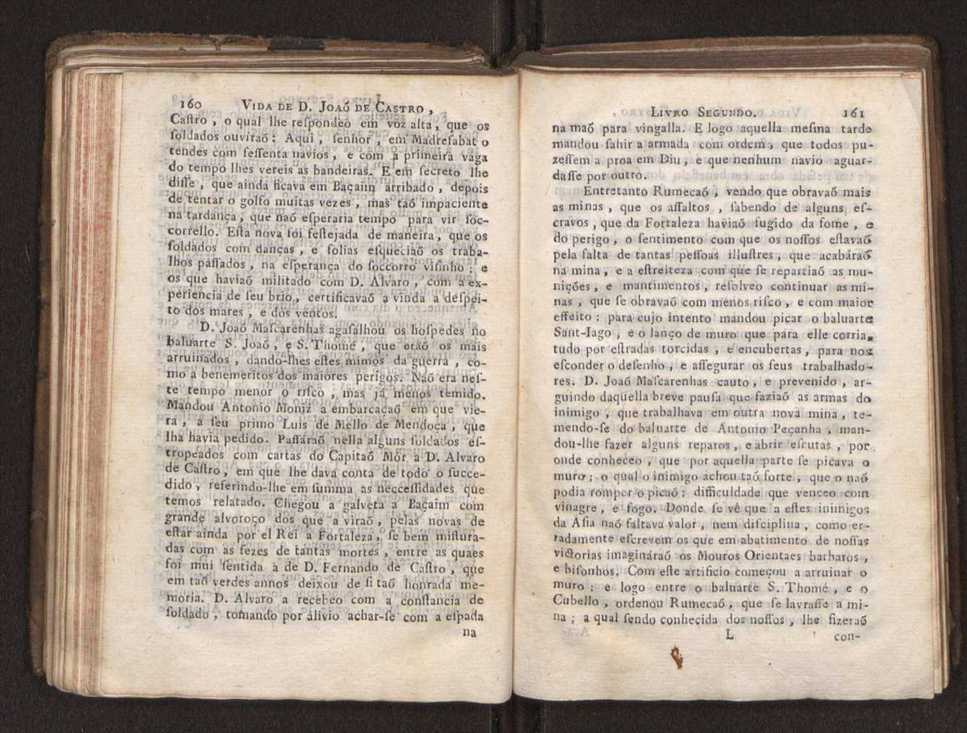 160 VIDA DE D. JOAÕ DE CASTRO ,
Caſtro , o qual lhe reſpondeo em voz alta , que os
ſoldados ouviraõ : Aqui , ſenhor , em Madrefabat o
tendes com ſeſſenta navios , e com a primeira vaga
do tempo lhes vereis as bandeiras. E em ſecreto lhe
diſſe , que ainda ficava em Baçaim arribado , depois
de tentar o golfo muitas vezes , mas taõ impaciente
na tardança , que naõ eſperaria tempo para vir ſoc-
corrello. Eſta nova foi feſtejada de maneira, que os
ſoldados com danças , e folias eſqueciaõ os traba-
lhos paſſados , na eſperança do ſoccorro viſinho : e
os que haviaõ militado com D. Alvaro , com a ex-
periencia de ſeu brio , certificavaõ a vinda a deſpei-
to dos mares , e dos ventos.
D. Joaõ Maſcarenhas agaſalhou os hoſpedes no
baluarte S. Joaõ , e S. Thomé , que eraõ os mais
arruinados , dando-lhes eſtes mimos da guerra , co-
mo a benemeritos dos maiores perigos. Naõ era neſ-
te tempo menor o riſco , mas já menos temido.
Mandou Antonio Moniz a embarcaçaõ em que vie-
ra , a ſeu primo Luis de Mello de Mendoça , que
lha havia pedido. Paſſáraõ nella alguns ſoldados eſ-
tropeados com cartas do Capitaõ Mór a D. Alvaro
de Caſtro , em que lhe dava conta de todo o ſucce-
dido , referindo-lhe em ſumma as neceſſidades que
temos relatado. Chegou a galveta a Baçaim com
grande alvoroço dos que a viraõ , pelas novas de
eſtar ainda por el Rei a Fortaleza , ſe bem miſtura-
das com as fezes de tantas mortes , entre as quaes
foi mui ſentida a de D. Fernando de Caſtro , que
em taõ verdes annos deixou de ſi taõ honrada me-
moria. D. Alvaro a recebeo com a conſtancia de
ſoldado , tomando por álivio achar-ſe com a eſpada
na
LIVRO SEGUNDO. 161
na maõ para vingalla. E logo aquella meſma tarde
mandou ſahir a armada com ordem , que todos pu-
zeſſem a proa em Diu , e que nenhum navio aguar-
daſſe por outro.
Entretanto Rumecaõ , vendo que obravaõ mais
as minas , que os aſſaltos , ſabendo de alguns eſ-
cravos , que da Fortaleza haviaõ fugido da fome , e
do perigo , o ſentimento com que os noſſos eſtavaõ
pela falta de tantas peſſoas illuſtres , que acabáraõ
na mina , e a eſtreiteza com que ſe repartiaõ as mu-
nições , e mantimentos , reſolveo continuar as mi-
nas , que ſe obravaõ com menos riſco , e com maior
effeito : para cujo intento mandou picar o baluarte
Sant-Iago , e o lanço de muro que para elle corria,
tudo por eſtradas torcidas , e encubertas , para nos
eſconder o deſenho , e aſſegurar os ſeus trabalhado-
res. D. Joaõ Maſcarenhas cauto , e prevenido , ar-
guindo daquella breve pauſa que faziaõ as armas do
inimigo , que trabalhava em outra nova mina , te-
mendo-ſe do baluarte de Antonio Peçanha , man-
dou-lhe fazer alguns reparos , e abrir eſcutas , por
onde conheceo , que por aquella parte ſe picava o
muro ; o qual o inimigo achou taõ forte , que o naõ
podia romper o picaõ : difficuldade que venceo com
vinagre , e fogo. Donde ſe vê que a eſtes inimigos
da Aſia naõ faltava valor , nem diſciplina , como er-
radamente eſcrevem os que em abatimento de noſſas
victorias imagináraõ os Mouros Orientaes barbaros ,
e biſonhos. Com eſte artificio começou a arruinar o
muro : e logo entre o baluarte S. Thomé , e o
Cubello , ordenou Rumecaõ , que ſe lavraſſe a mi-
na ; a qual ſendo conhecida dos noſſos , lhe fizeraõ
L con-